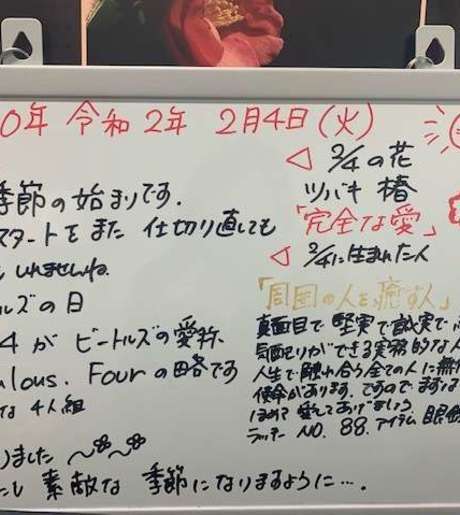 0年 令和2年 2月4日(火)
季節の始まりです.
スタートをまた 仕切り直しても
しれませんね.
ルズの日
4が ビートルズの愛称
ulous. Fourの略です
な 4人組
りました
素敵な 季節になりますように….
2/4の花
ツバキ 椿
「完全な愛」
2/4に生まれた人
「周囲の人を癒す人」
真面目で 堅実で誠実で
気配りができる実務的な人
人生で 触れ合う全ての人に無
使命があります. ですので まずは
ほめて 愛してあげましょう
ラッキー NO. 88. アイテム 眼鏡